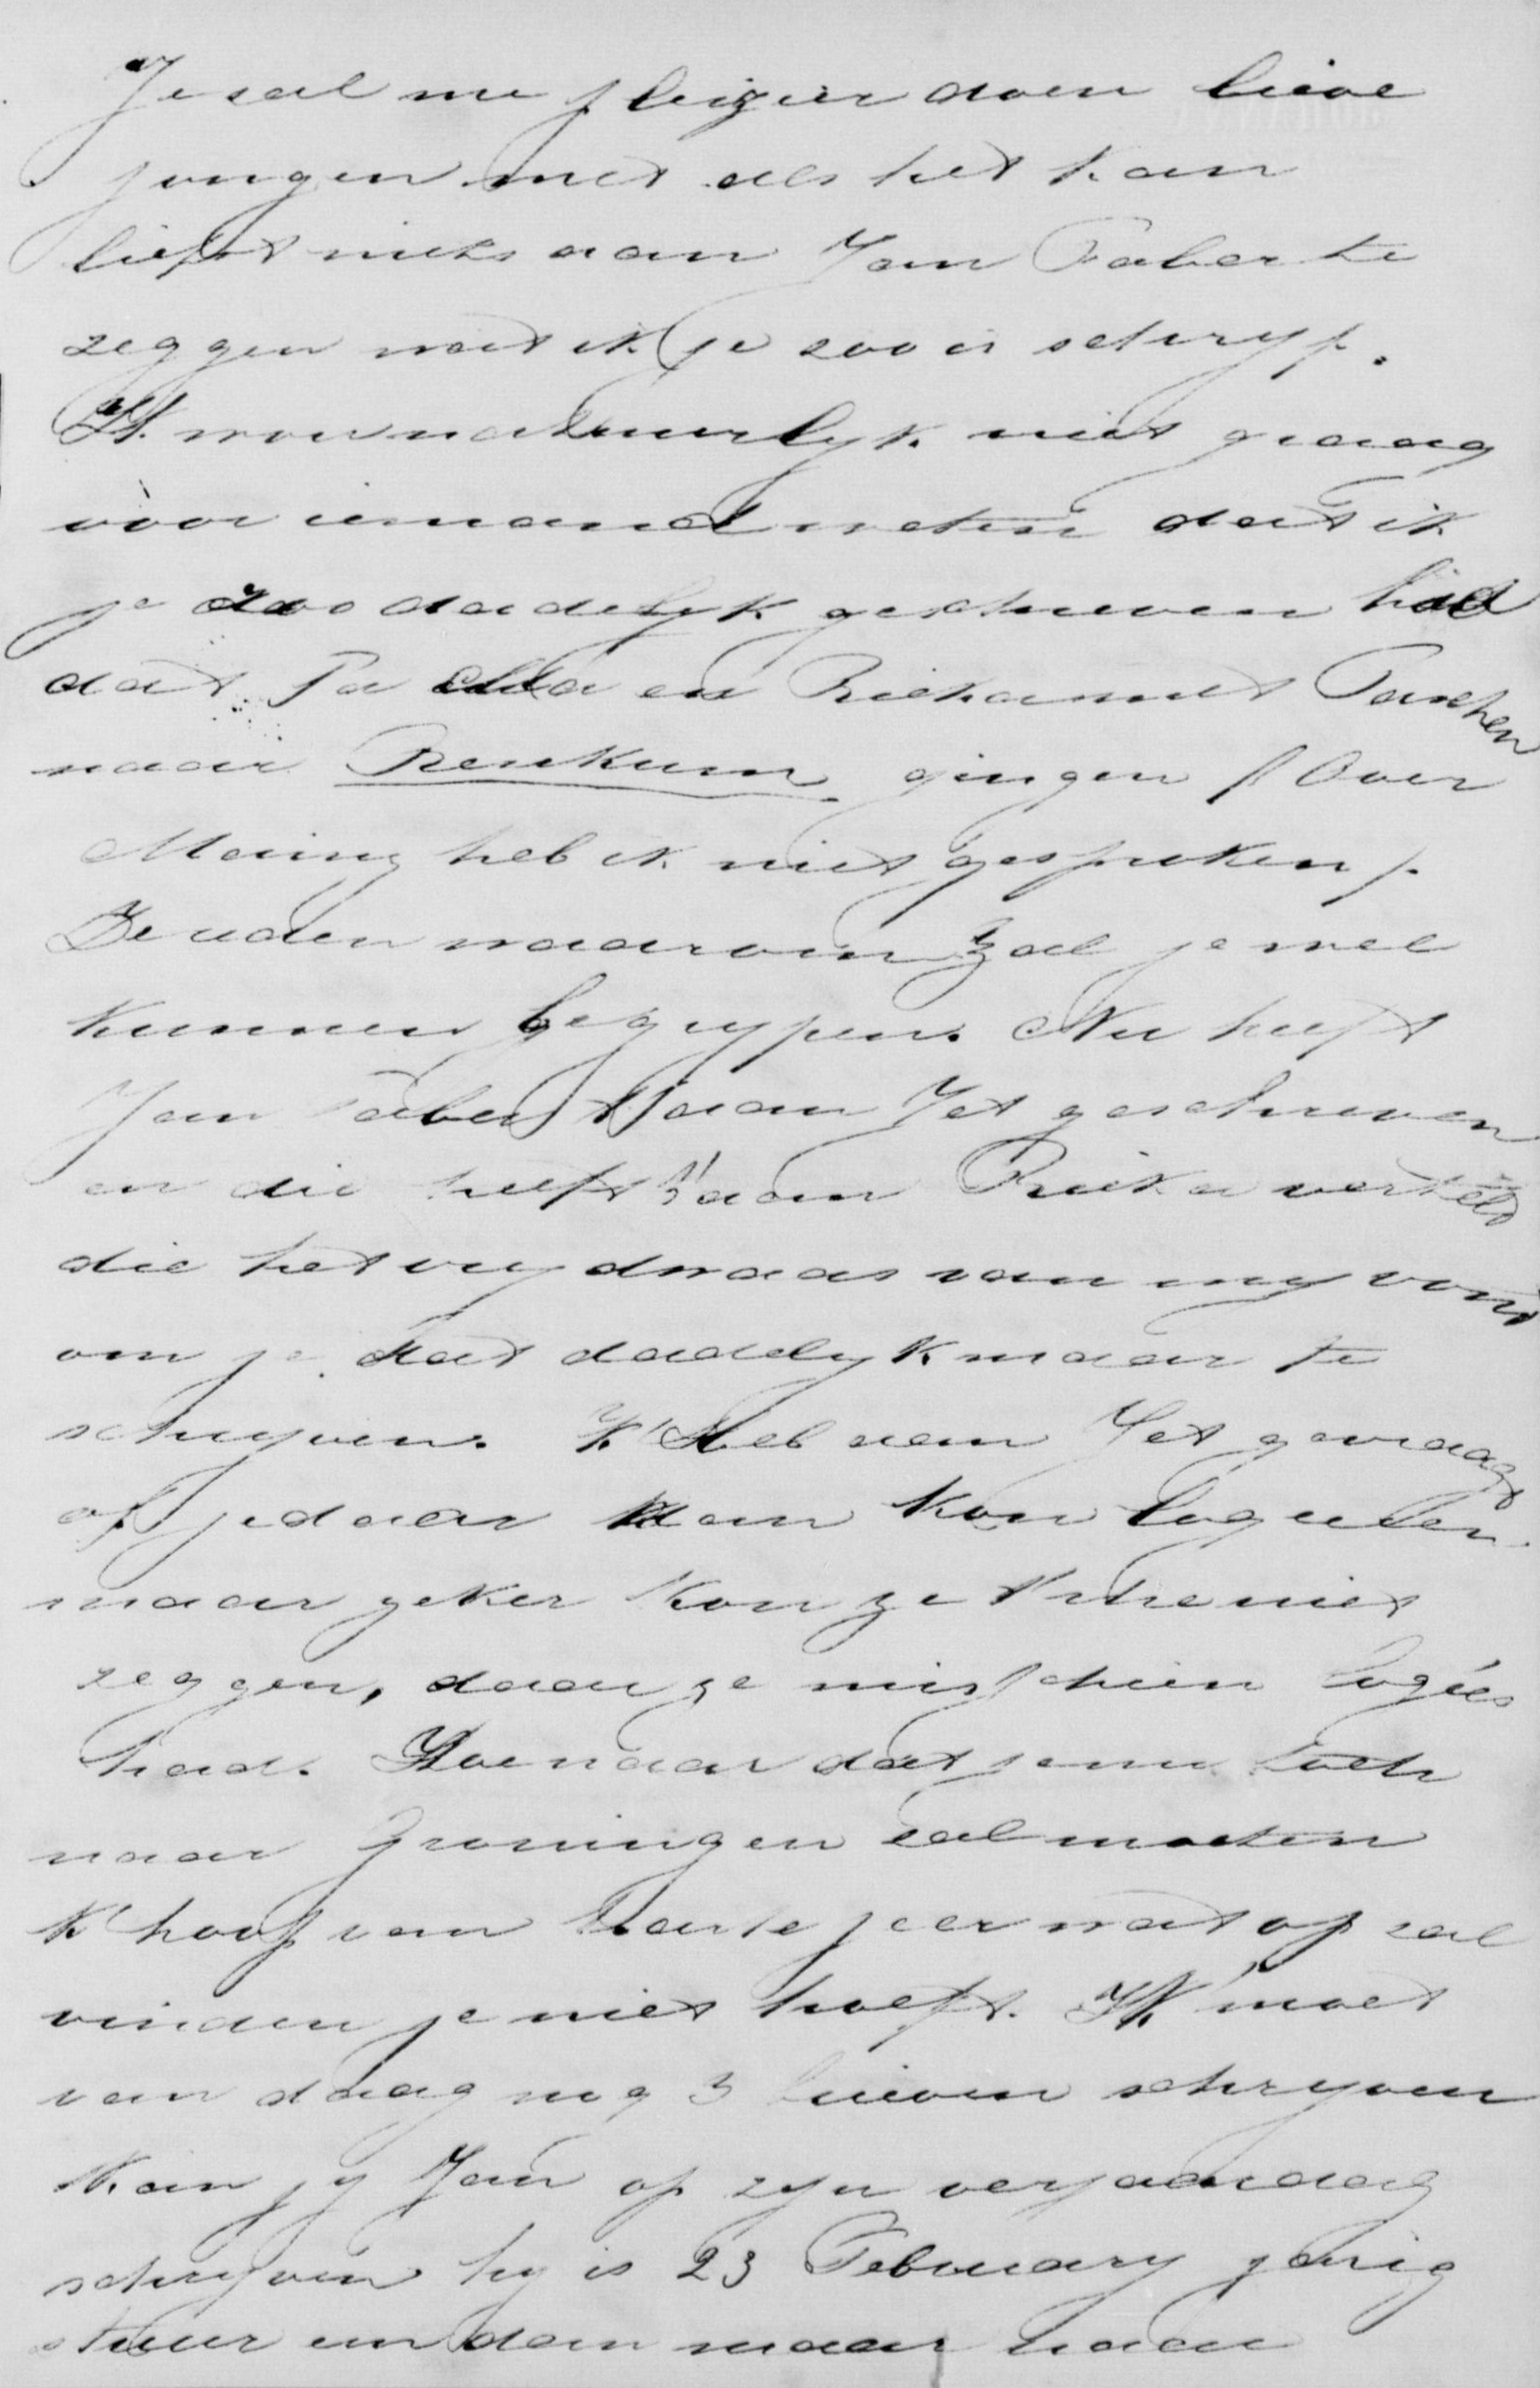 Je sal me pleizier doen lieve
jongen met als het kan
liefst niets aan Jan Faber te
zeggen wat ik je zoo is schryf.
Ik wou natuurlyk niet graag
vòor iemand weten dat ik
je zoo dadelyk geschreven had
dat Pa Ma en Rieka met Paschen
naar Renkum gingen (Over
Meiny heb ik niet gesproken).
De reden waarom zal je wel
kunnen begrypen. Nu heeft
Jan Faber 't aan Jet geschreven
en die heeft 't aan Rieka verteld
die het vry dwaas van my vond
om je dat dadelyk maar te
schryven. K' Heb aan Jet gevraagd
of je daar dan kon logeeren.
maar zeker kon ze 't me niet
zeggen, daar ze misschien logées
had. Hoe naar dat je nu toch
naar Groningen zal moeten
K' hoop van harte je er wat op zal
vinden je niet hoeft. Ik moet
van daag nog 3 brieven schryven
Kan jy Jan op zyn verjaardag
schryven hy is 23 February jarig
stuur em dan maar naar